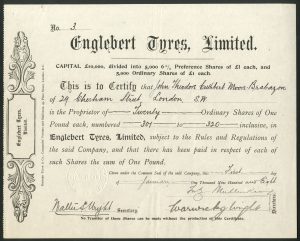 No. 3
Englebert Tyres, Limited.
CAPITAL £10,000, divided into 5,000 6% Preference Shares of £1 each, and
5,000 Ordinary Shares of £1 each.
This is to Certify that John Theodore Cuthbert Moore Brabazon
of 29 Chesham Street, London S.W.
is the Proprietor of Twenty Ordinary Shares of One
Pound each, numbered 301 to 320 inclusive, in
Englebert Tyres, Limited, subject to the Rules and Regulations of
the said Company, and that there has been paid in respect of each
of such Shares the sum of One Pound.
Given under the Common Seal of the said Company, this First
day of January One Thousand Nine Hundred and Eight
Secretary.
Warwick Wright
Directors
No Transfer of these Shares can be made without the production of this Certificate.
Englebert Tyres, Limited.